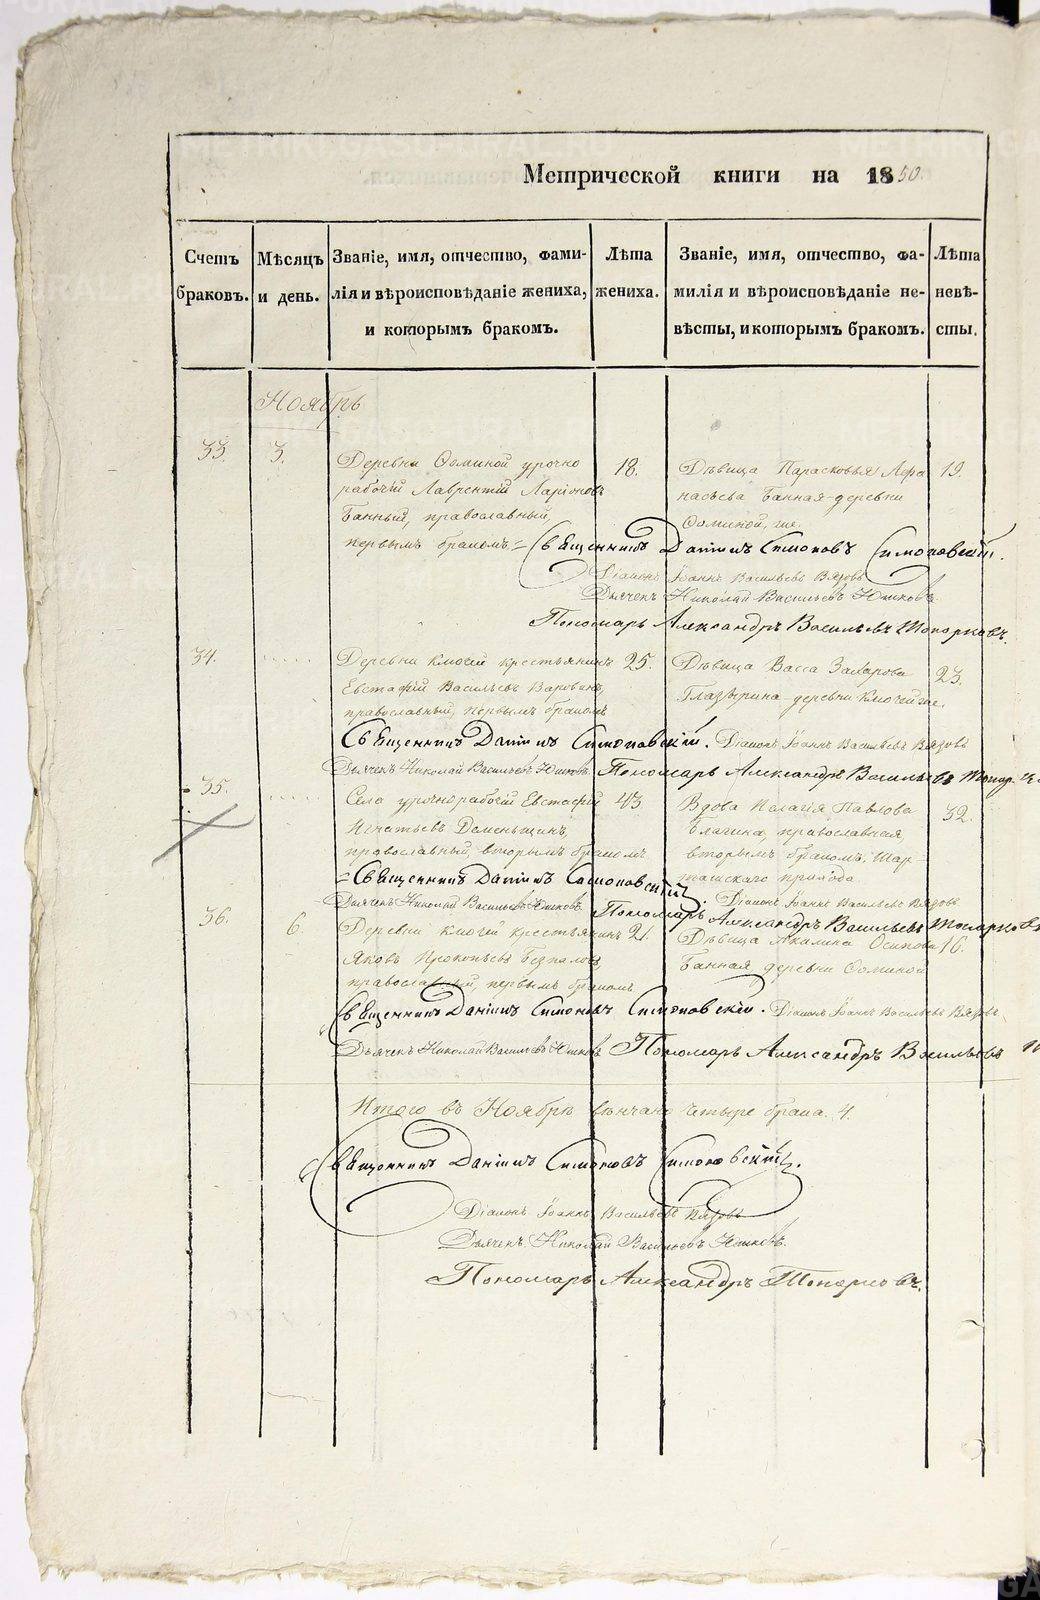 Метрической книги на 1850.
Счетъ браковъ.
Мѣсяцъ и день.
Званіе, имя, отчество, фами-
лія и вѣроисповѣданіе жениха,
и которымъ бракомъ.
Лѣта
жениха.
Званіе, имя, отчество, фа-
милія и вѣроисповѣданіе не-
вѣсты, и которымъ бракомъ.
Лѣта
невѣ-
сты.
Ноябрь
33. 3. Деревни Фоминой урочно 18. Дѣвица Парасковья Афа 19.
рабочій Лаврентій Ларіоновъ насьева Банная деревни
Банный, православный, Фоминой, же.
первымъ бракомъ = Священникъ Даніилъ Симоновъ Симоновскій.
Діаконъ Іоаннъ Васильевъ Вязовъ
Дьячекъ Николай Васильевъ Юшковъ
Пономарь Александръ Васильевъ Топорковъ.
34. Деревни Ключей крестьянинъ 25. Дѣвица Васса Захарова 23.
Евстафій Васильевъ Глазырина деревни Ключей же.
православный, первымъ бракомъ
Священникъ Даніилъ Симоновскій. Діаконъ Іоаннъ Васильевъ Вязовъ
Дьячекъ Николай Васильевъ Юшковъ Пономарь Александръ Васильевъ
35. Села урочнорабочій Евстафій 43 Вдова Пелагія Павлова 32.
Игнатьевъ православная
православный, вторымъ бракомъ вторымъ бракомъ, Шар-
ташскаго прихода
= Священникъ Даніилъ Симоновскій. Діаконъ Іоаннъ Васильевъ Вязовъ
Дьячекъ Николай Васильевъ Юшковъ Пономарь Александръ Васильевъ
36. 6. Деревни Ключей крестьянинъ 21. Дѣвица Акилина Осипова 16.
Яковъ Прокопьевъ Безпаловъ Банная деревни Фоминой
православный, первымъ бракомъ
Священникъ Даніилъ Симоновъ Симоновскій. Діаконъ Іоаннъ Васильевъ Вязовъ
Дьячекъ Николай Васильевъ Юшковъ Пономарь Александръ Васильевъ
Итого въ Ноябрѣ вѣнчано четыре брака. 4.
Священникъ Даніилъ Симоновъ Симоновскій.
Діаконъ Іоаннъ Васильевъ Вязовъ
Дьячекъ Николай Васильевъ Юшковъ.
Пономарь Александръ Топорковъ.